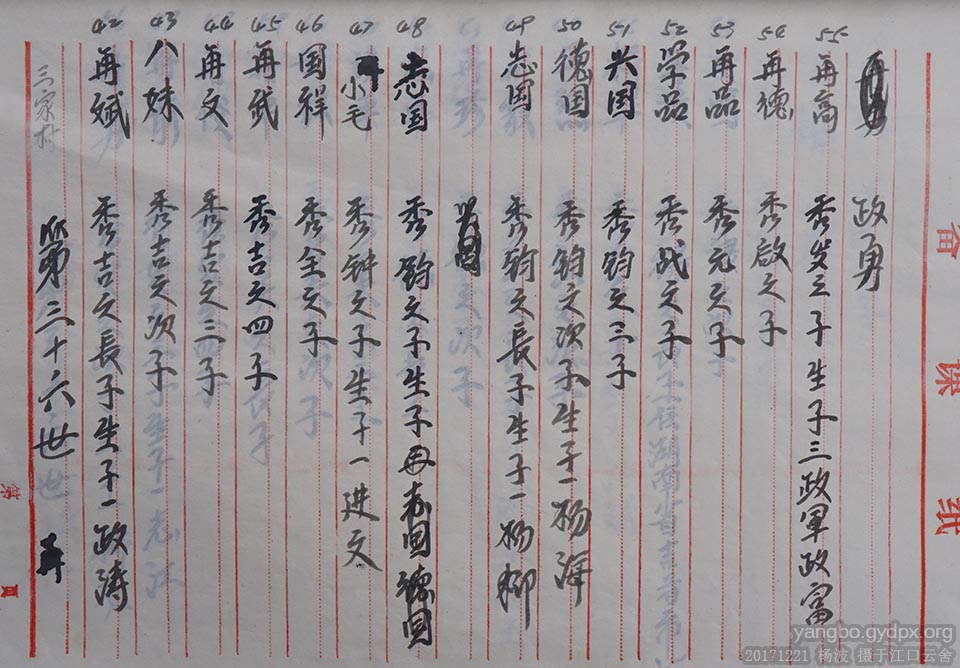 政勇
55 再高 秀发之子生子三政军政富
54 再德 秀啟之子
53 再品 秀元之子
52 学品 秀成之子
51 兴国 秀钧之三子
50 德国 秀钧之次子生子一杨海
49 志国 秀钧之長子生子一杨柳
48 志国 秀钧之子生子四志国德国
兴国
47 小毛 秀钟之子生子一进文
46 国祥 秀全之子
45 再武 秀吉之四子
44 再文 秀吉之三子
43 八妹 秀吉之次子
42 再斌 秀吉之長子生子一政涛
第三十六世
三家村
备课纸
第 页
yangbo.gydpx.org
20171221 杨波 摄于江口云舍